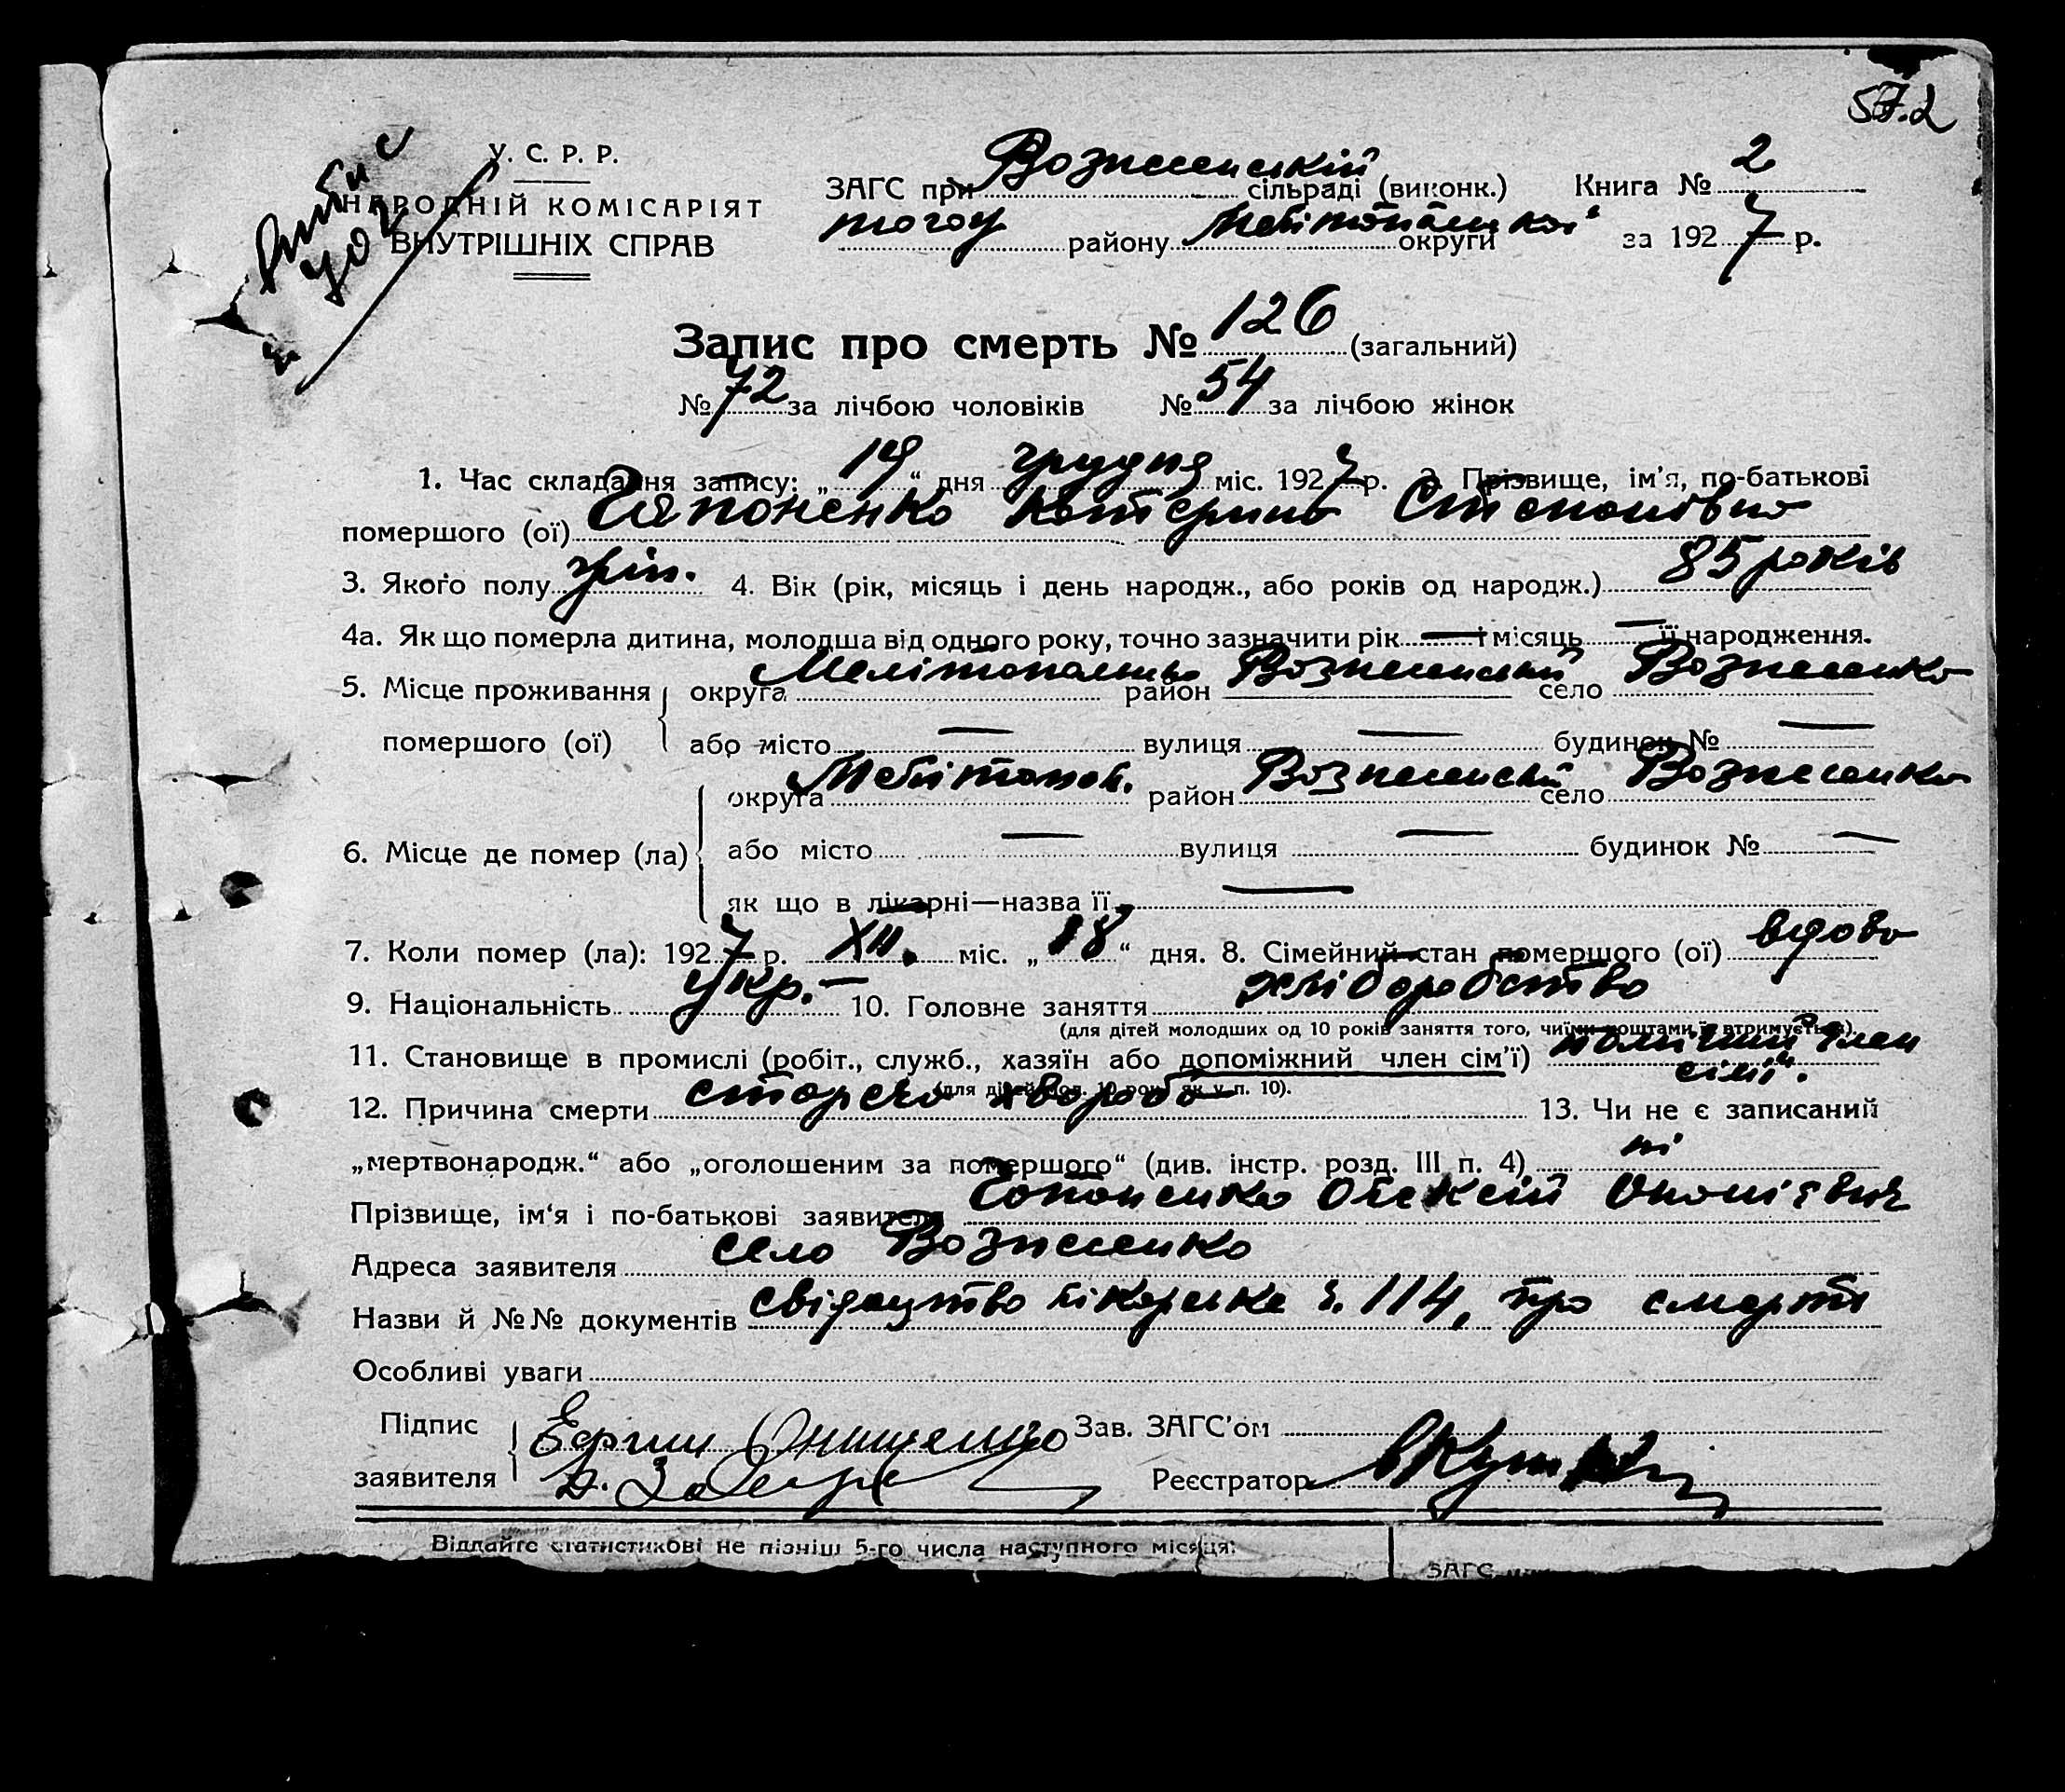 57.2
У. С. Р. Р.
НАРОДНІЙ КОМІСАРІЯТ
ВНУТРІШНІХ СПРАВ
ЗАГС при Вознесенській сільраді (виконк.) Книга № 2
того району Мелітопальської округи за 1927 р.
Запис про смерть № 126 (загальний)
№ 72 за лічбою чоловіків № 54 за лічбою жінок
1. Час складання запису: „19“ дня грудня міс. 1927 р. 2. Прізвище, ім'я, по-батькові
помершого (ої) Гапоненко Катерина Степанівна
3. Якого полу жін. 4. Вік (рік, місяць і день народж., або років од народж.) 85 років
4а. Як що померла дитина, молодша від одного року, точно зазначити рік — і місяць — її народження.
5. Місце проживання округа Мелітопольська район Вознесенський село Вознесенка
помершого (ої) або місто — вулиця — будинок № —
округа Мелітопол. район Вознесенськ село Вознесенка
6. Місце де помер (ла) або місто — вулиця — будинок № —
як що в лікарні—назва її —
7. Коли помер (ла): 1927 р. XII. міс. „18“ дня. 8. Сімейний стан помершого (ої) вдова
9. Національність укр. — 10. Головне заняття хліборобство
(для дітей молодших од 10 років заняття того, чиїми коштами їх втримується).
11. Становище в промислі (робіт., служб., хазяїн або допоміжний член сім'ї) член
сімї.
(для дітей мол. 10 рок. як у п. 10).
12. Причина смерти стареча хвороба 13. Чи не є записаний
„мертвонародж.“ або „оголошеним за помершого“ (див. інстр. розд. III п. 4) ні
Прізвище, ім'я і по-батькові заявителя Гапоненко Олексій
Адреса заявителя село Вознесенка
Назви й №№ документів свідоцтво лікарське ч. 114, про смерть
Особливі уваги
Підпис Зав. ЗАГС'ом
заявителя Реєстратор
Віддайте статистикові не пізніш 5-го числа наступного місяця:
ЗАГС